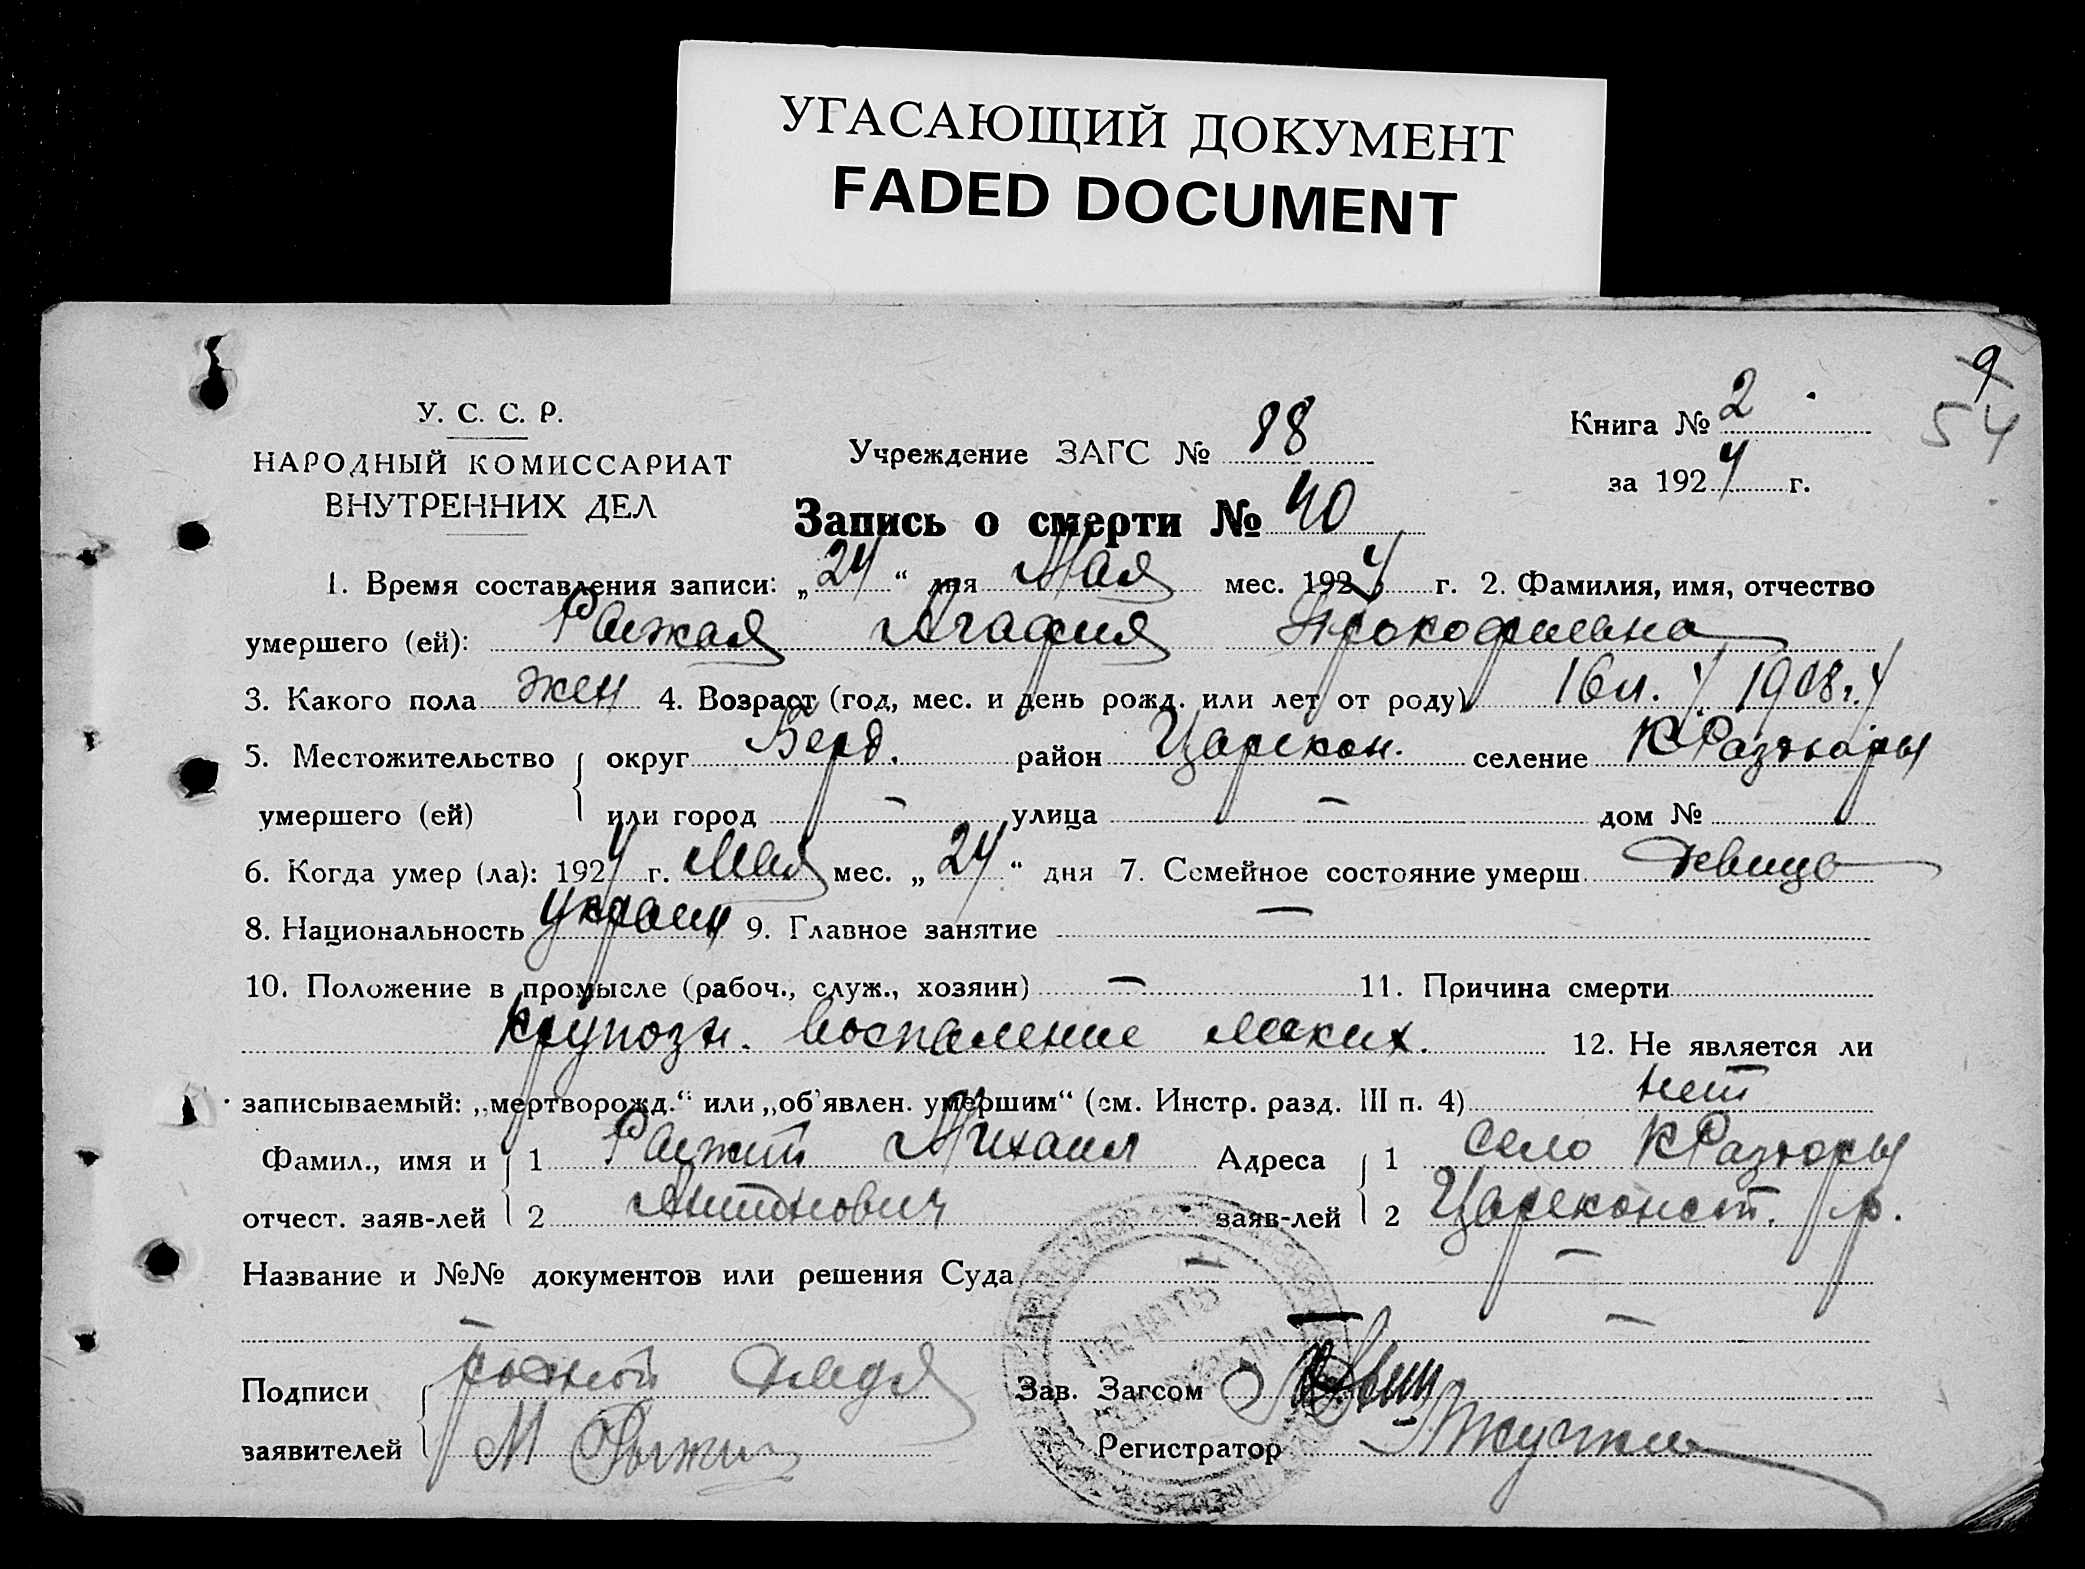 УГАСАЮЩИЙ ДОКУМЕНТ
FADED DOCUMENT
9
54
У. С. С. Р.
НАРОДНЫЙ КОМИССАРИАТ
ВНУТРЕННИХ ДЕЛ
Учреждение ЗАГС № 88
Книга № 2
за 1924 г.
Запись о смерти № 40
1. Время составления записи: „24“ дня Мая мес. 1924 г. 2. Фамилия, имя, отчество
умершего (ей): Рыжая Агафия Прокофиевна
3. Какого пола жен 4. Возраст (год, мес. и день рожд. или лет от роду) 16 л. 1908 г.
5. Местожительство округ Берд. район Царекон. селение К Разторы
умершего (ей) или город — улица — дом №
6. Когда умер (ла): 1924 г. Мая мес. „24“ дня 7. Семейное состояние умерш. девица
8. Национальность украин 9. Главное занятие —
10. Положение в промысле (рабоч., служ., хозяин) — 11. Причина смерти
крупозн. воспаление легких. 12. Не является ли
записываемый: „мертворожд.“ или „об'явлен. умершим“ (см. Инстр. разд. III п. 4) нет
Фамил., имя и 1 Рыжий Михаил Адреса 1 село К Разторы
отчест. заяв-лей 2 Антонович заяв-лей 2 Цареконст. р.
Название и №№ документов или решения Суда — —
— — —
Подписи родной дядя Зав. Загсом
заявителей М Рыжий Регистратор
ПЕЧАТЬ